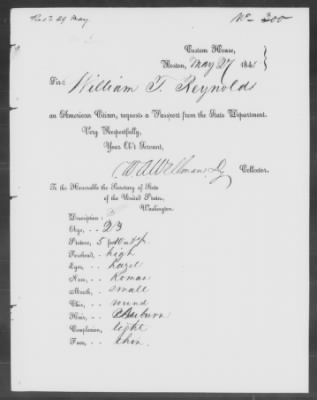 Rec'd 29 May
No. 300
Custom House,
Boston, May 27 184
Sir:
William T. Reynolds
an American Citizen, requests a Passport from the State Department.
Very Respectfully,
Your Ob't Servant,
Collector.
To the Honorable the Secretary of State
of the United States,
Washington.
Description
Age, 23
Stature, 5 feet
Forehead, high
Eyes, hazel
Nose, Roman
Mouth, small
Chin, round
Hair, Auburn
Complexion, light
Face, thin.